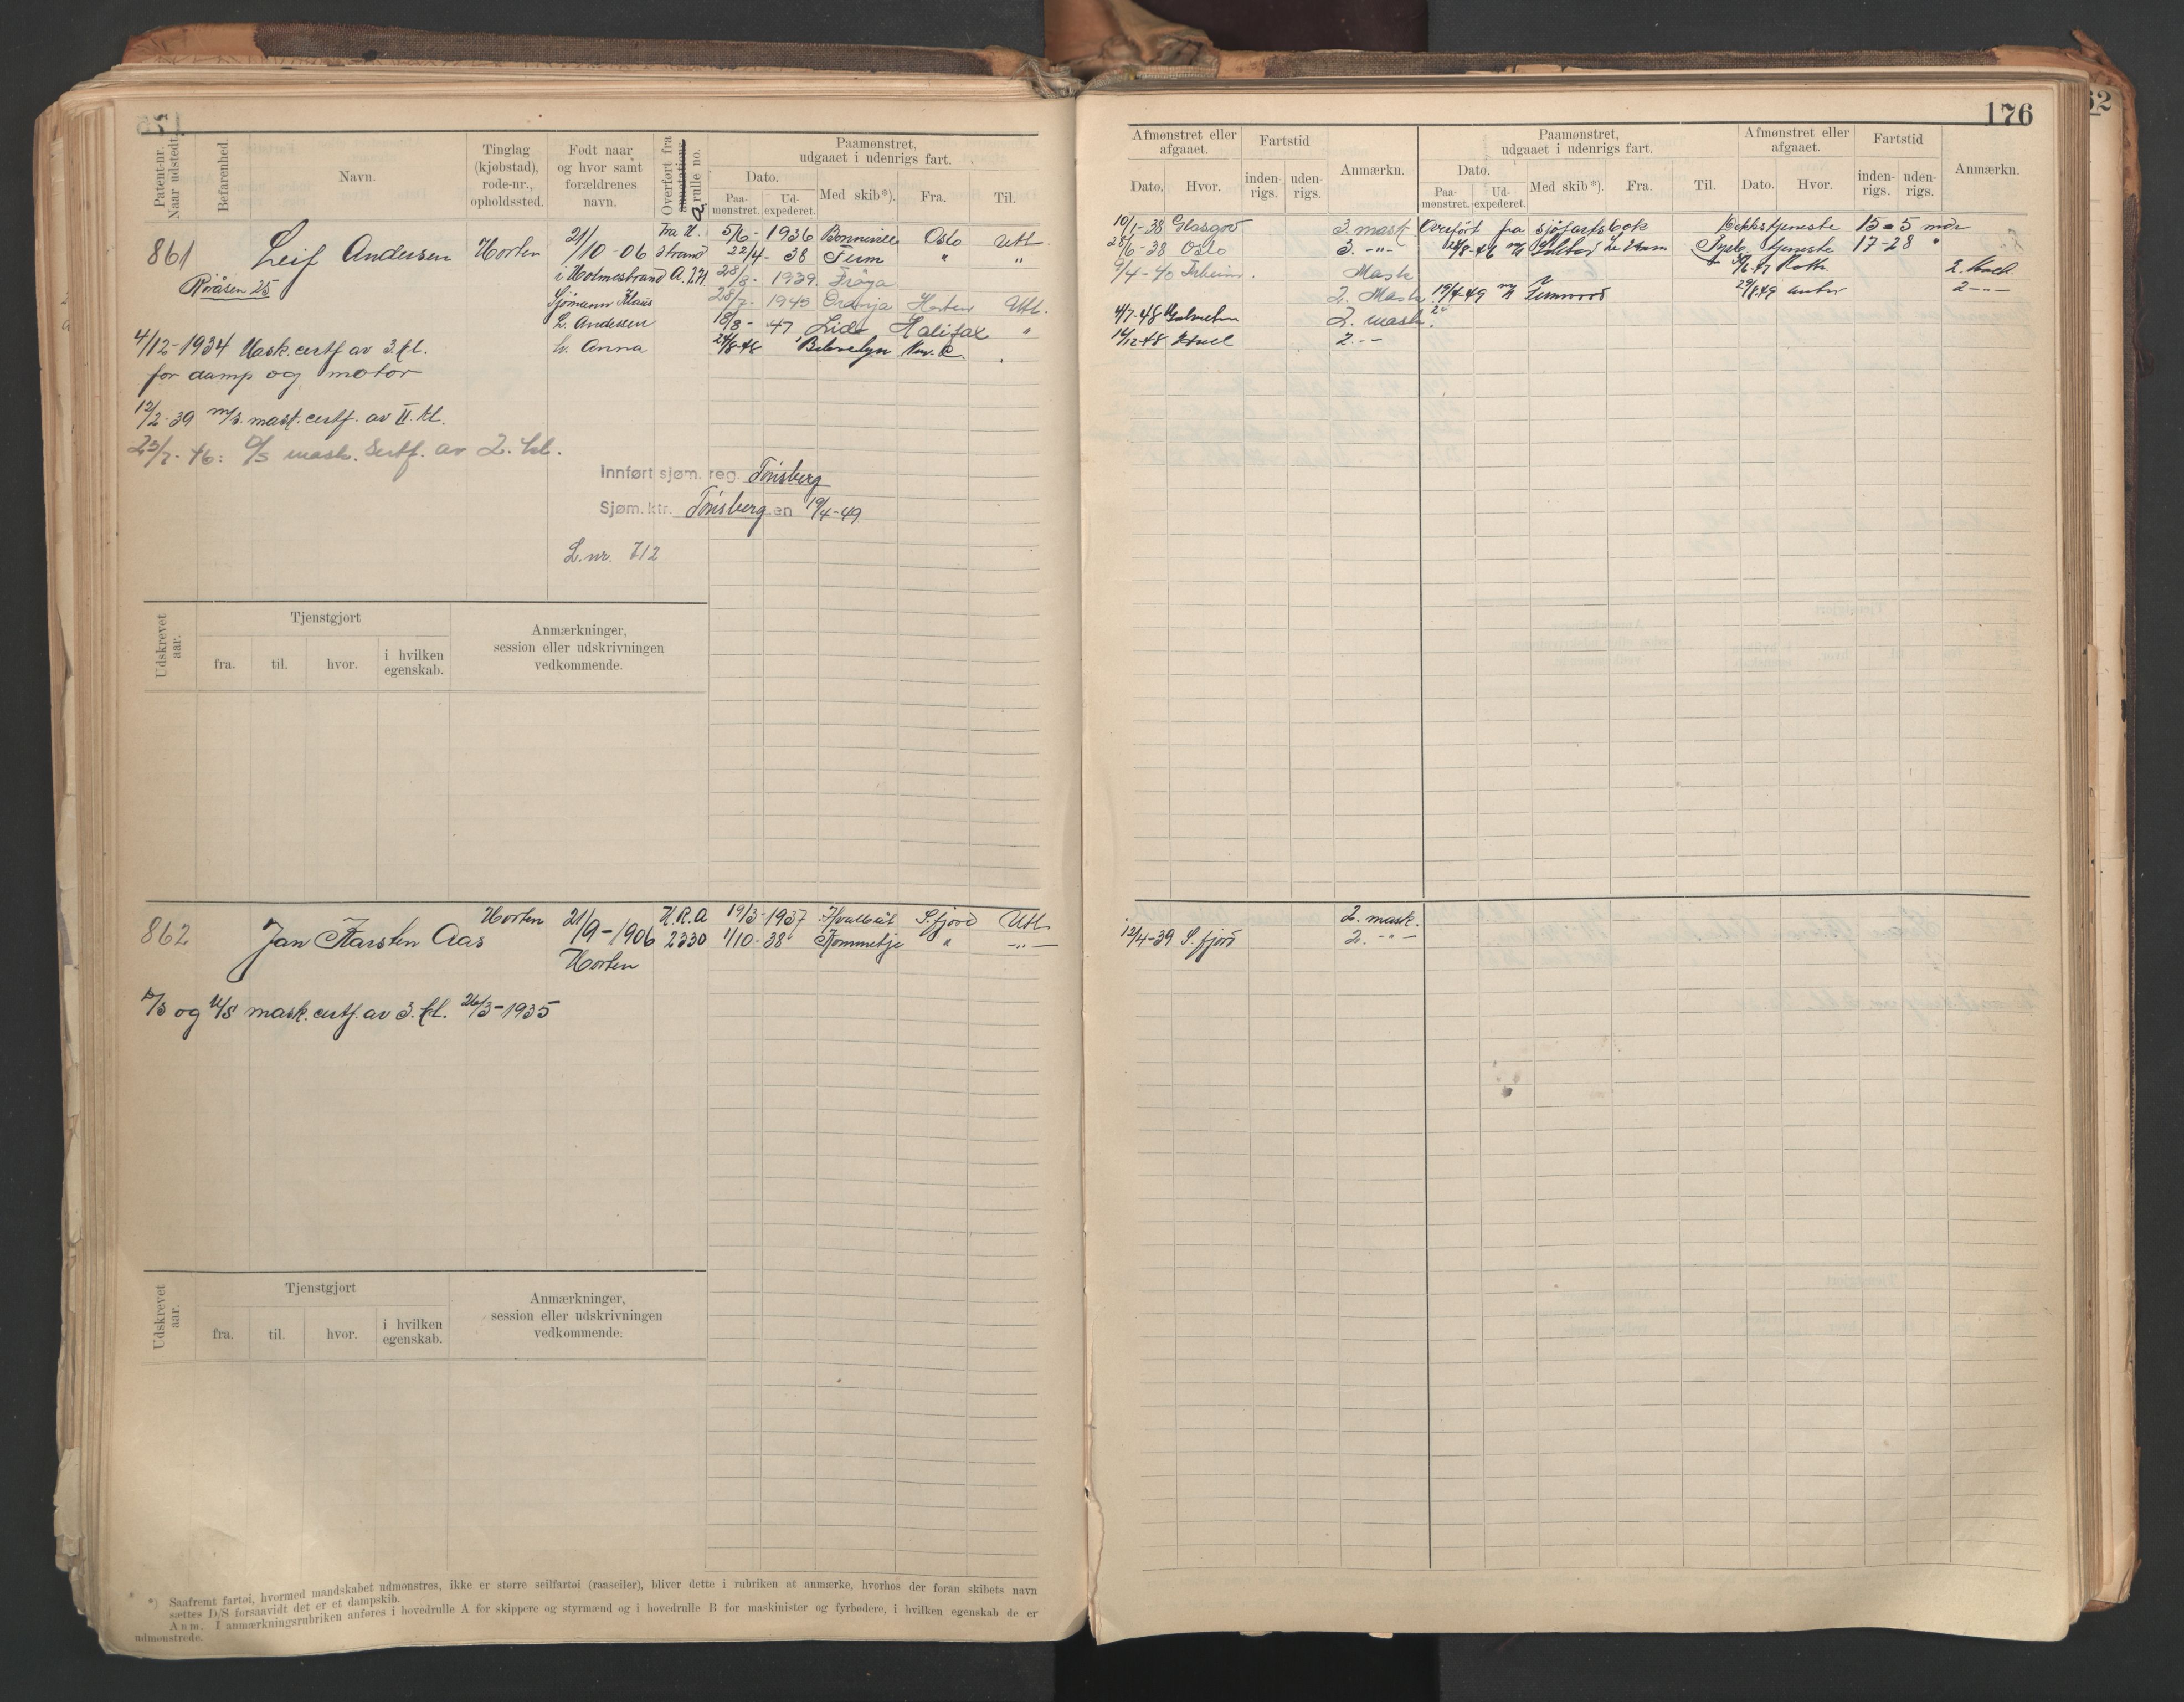 176
Patent-nr. Naar udstedt.
Befarenhed.
Navn.
Tinglag (kjøbstad), rode-nr., opholdssted.
Født naar og hvor samt forældrenes navn.
Overført fra annotations a. rulle no.
Paamønstret, udgaaet i udenrigs fart.
Dato.
Paamønstret.
Udexpederet.
Med skib*).
Fra.
Til.
861 Leif Andersen Horten 21/10-06 fra H. strand 5/6-1936 Bonneville Oslo Utl.
22/4-38 Tum " "
Røråsen 25
i Holmestrand A. 271 28/8-1939 Frøya
Sjømann Klaus 28/7-1945 Horten Utl.
L. Andersen 18/8-47 Lido Halifax "
4/12-1934 Mask.certf av 3.kl.
h. Anna 24/8-48 Belevelyn
for damp og motor
12/2-39 m/s. mask.certf. av II kl.
25/7-46: D/S mask. Sertf. av 2. kl.
Innført sjøm. reg. Tønsberg
Sjøm.ktr. Tønsberg en 19/4-49.
L.nr. 712
Udskrevet aar.
Tjenstgjort
fra.
til.
hvor.
i hvilken egenskab.
Anmærkninger, session eller udskrivningen vedkommende.
862 Jan Karsten Aas Horten 21/9-1906 H.R.A 19/3-1937 Hvalbåt S.fjord Utl.
2330 1/10-38 Kommetje " -"-
Horten
D/S og M/S mask.certf.av 3.kl. 26/3-1935
Udskrevet aar.
Tjenstgjort
fra.
til.
hvor.
i hvilken egenskab.
Anmærkninger, session eller udskrivningen vedkommende.
*) Saafremt fartøi, hvormed mandskabet udmønstres, ikke er større seilfartøi (raaseiler), bliver dette i rubriken at anmærke, hvorhos der foran skibets navn
sættes D/S forsaavidt det er et dampskib.
Anm. I anmærkningsrubriken anføres i hovedrulle A for skippere og styrmænd og i hovedrulle B for maskinister og fyrbødere, i hvilken egenskab de er
udmønstrede.
Afmønstret eller afgaaet.
Dato.
Hvor.
Fartstid
indenrigs.
udenrigs.
Anmærkn.
Paamønstret, udgaaet i udenrigs fart.
Dato.
Paamønstret.
Udexpederet.
Med skib*).
Fra.
Til.
Afmønstret eller afgaaet.
Dato.
Hvor.
Fartstid
indenrigs.
udenrigs.
Anmærkn.
10/1-38 Glasgow 3.mask Overført fra sjøfartsbok Dekkstjeneste 15-5 mdr
28/6-38 Oslo 3. -"- 12/8-46 tjeneste 17-28 "
9/4-40 Mask 2. Mask
2. Mask. 19/4-49 Fernwood 29/8-49 2 -"-
4/7-48 2. mask.
14/12-48 Hull 2. -"-
2. mask.
12/4-39 S.fjord 2. -"-
62